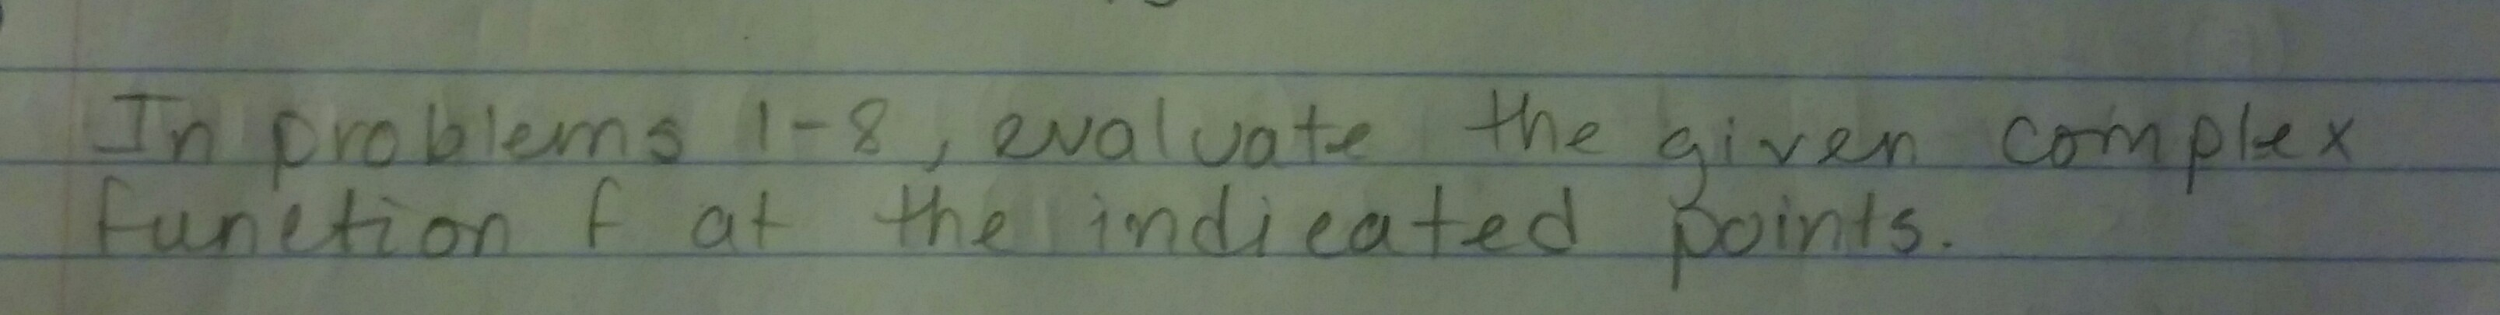 In problems 1-8, evaluate the given complex
function f at the indicated points.